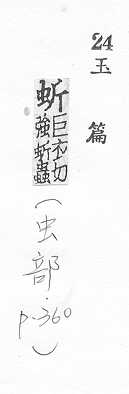 24
玉篇
蚚 巨衣切
強蚚蟲
(虫部.
p.360)